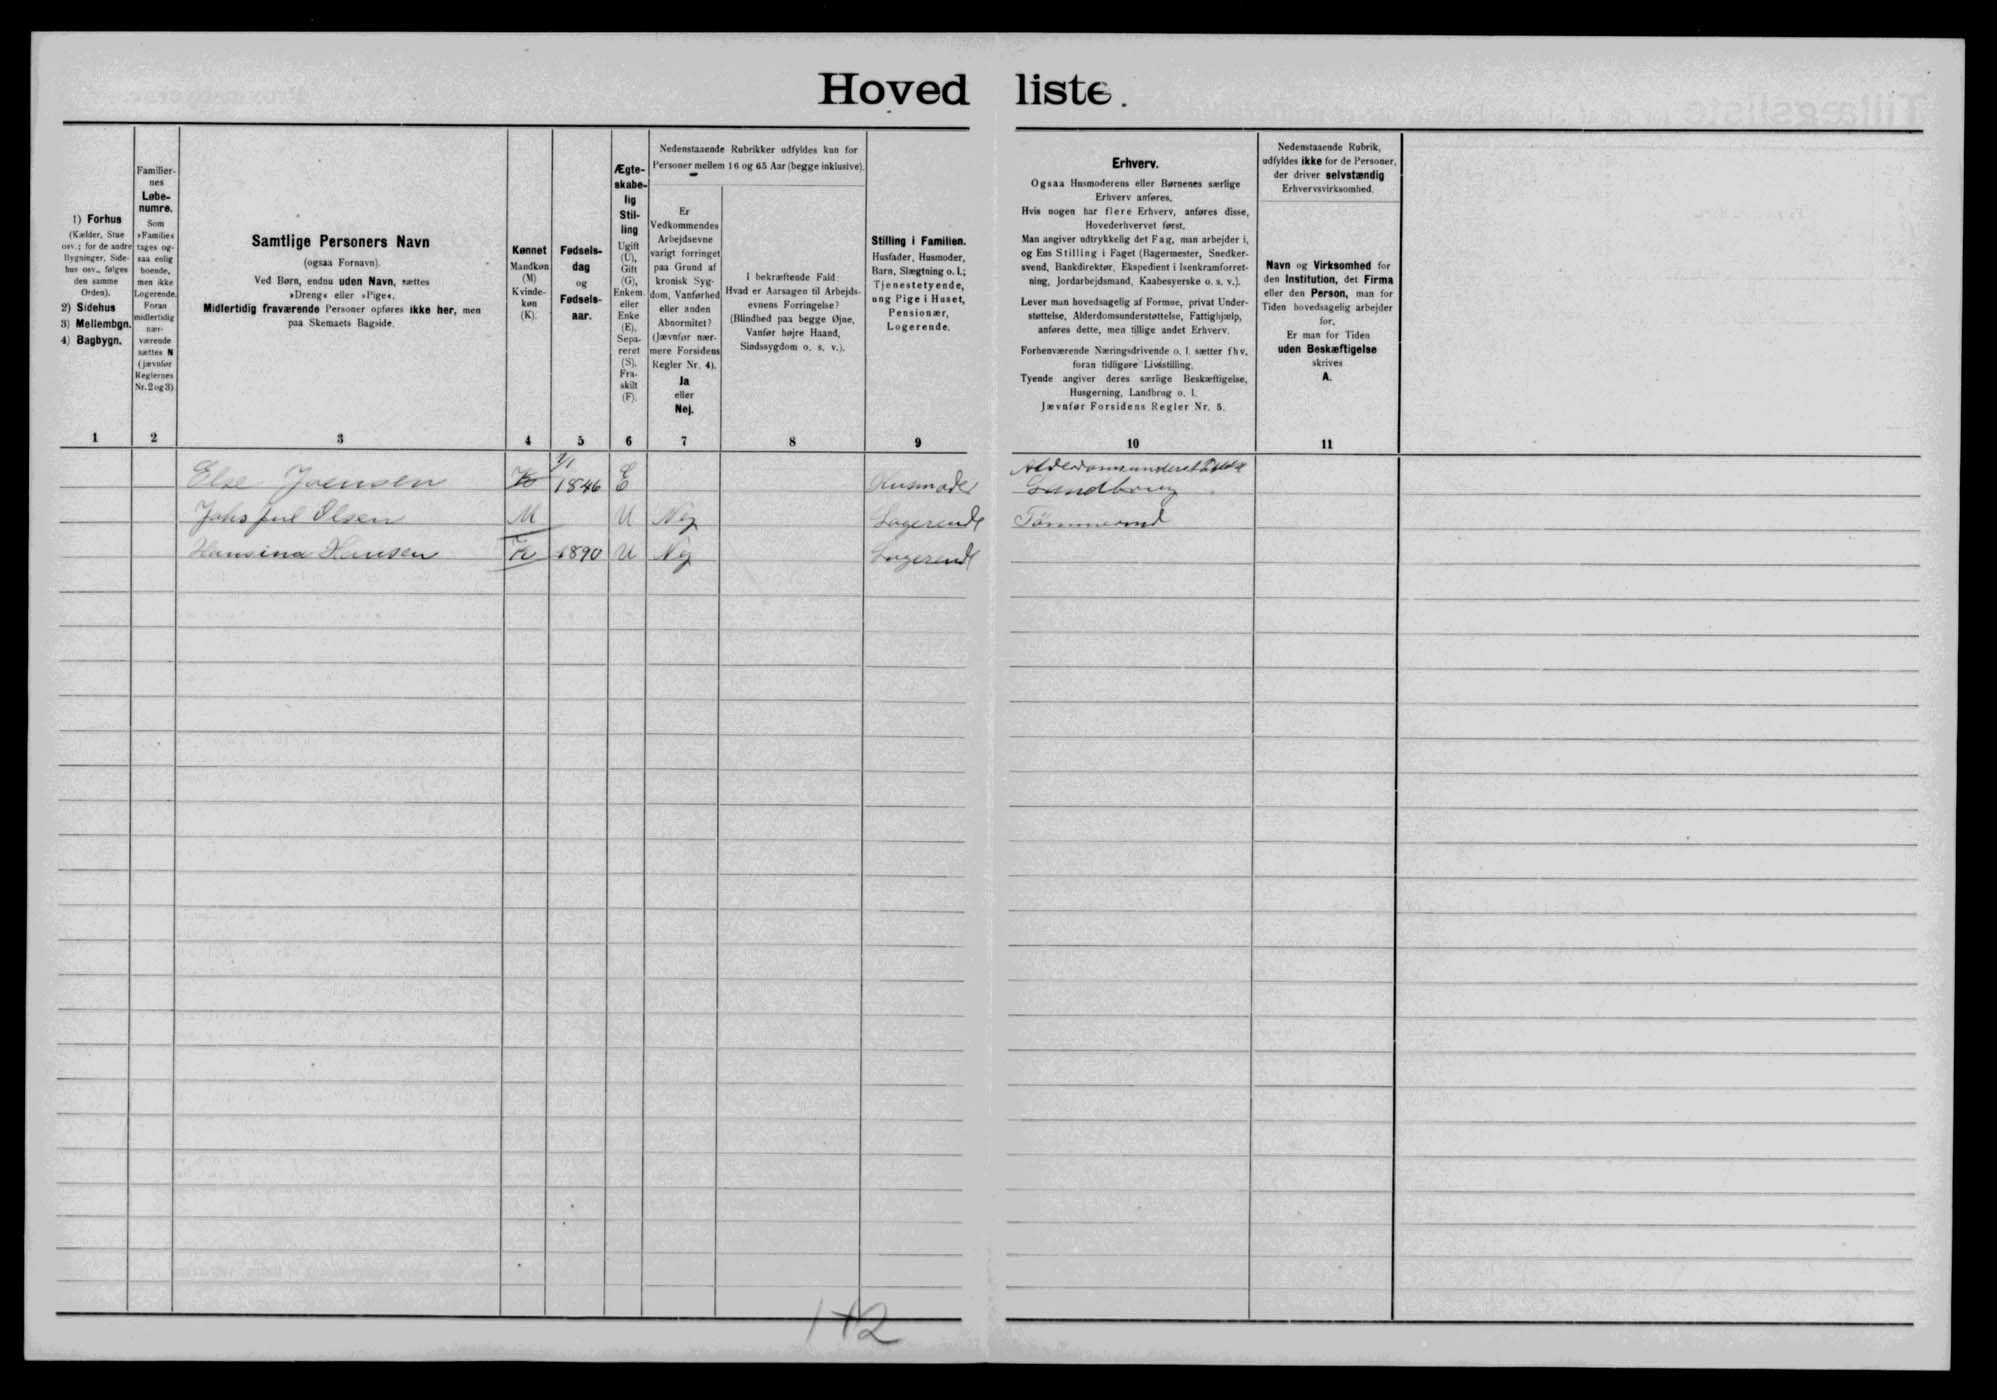 Hovedliste.
1) Forhus
(Kælder, Stue
osv.; for de andre
Bygninger, Side-
hus osv., følges
den samme
Orden).
2) Sidehus
3) Mellembgn.
4) Bagbygn.
Familier-
nes
Løbe-
numre.
Som
»Familie«
tages og-
saa enlig
boende,
men ikke
Logerende.
Foran
midlertidig
nær-
værende
sættes N
(jævnfør
Reglernes
Nr. 2 og 3)
Samtlige Personers Navn
(ogsaa Fornavn).
Ved Børn, endnu uden Navn, sættes
»Dreng« eller »Pige«.
Midlertidig fraværende Personer opføres ikke her, men
paa Skemaets Bagside.
Kønnet
Mandkøn
(M)
Kvinde-
køn
(K).
Fødsels-
dag
og
Fødsels-
aar.
Ægte-
skabe-
lig
Stil-
ling
Ugift
(U),
Gift
(G),
Enkem.
eller
Enke
(E),
Sepa-
reret
(S),
Fra-
skilt
(F).
Nedenstaaende Rubrikker udfyldes kun for
Personer mellem 16 og 65 Aar (begge inklusive).
Er
Vedkommendes
Arbejdsevne
varigt forringet
paa Grund af
kronisk Syg-
dom, Vanførhed
eller anden
Abnormitet?
(Jævnfør nær-
mere Forsidens
Regler Nr. 4).
Ja
eller
Nej.
I bekræftende Fald:
Hvad er Aarsagen til Arbejds-
evnens Forringelse?
(Blindhed paa begge Øjne,
Vanfør højre Haand,
Sindssygdom o. s. v.).
Stilling i Familien.
Husfader, Husmoder,
Barn, Slægtning o. l.;
Tjenestetyende,
ung Pige i Huset,
Pensionær,
Logerende.
Erhverv.
Ogsaa Husmoderens eller Børnenes særlige
Erhverv anføres.
Hvis nogen har flere Erhverv, anføres disse,
Hovederhvervet først.
Man angiver udtrykkelig det Fag, man arbejder i,
og Ens Stilling i Faget (Bagermester, Snedker-
svend, Bankdirektør, Ekspedient i Isenkramforret-
ning, Jordarbejdsmand, Kaabesyerske o. s. v.).
Lever man hovedsagelig af Formue, privat Under-
støttelse, Alderdomsunderstøttelse, Fattighjælp,
anføres dette, men tillige andet Erhverv.
Forhenværende Næringsdrivende o. l. sætter fhv.
foran tidligere Livsstilling.
Tyende angiver deres særlige Beskæftigelse,
Husgerning, Landbrug o. l.
Jævnfør Forsidens Regler Nr. 5.
Nedenstaaende Rubrik,
udfyldes ikke for de Personer,
der driver selvstændig
Erhvervsvirksomhed.
Navn og Virksomhed for
den Institution, det Firma
eller den Person, man for
Tiden hovedsagelig arbejder
for.
Er man for Tiden
uden Beskæftigelse
skrives
A.
1 2 3 4 5 6 7 8 9 10 11
Else Joensen K 1/1 1846 E Husmoder Landbrug
Johs Jul Olsen M U Nej Logerende
Hansina Hansen K 1890 U Nej Logerende
1+2